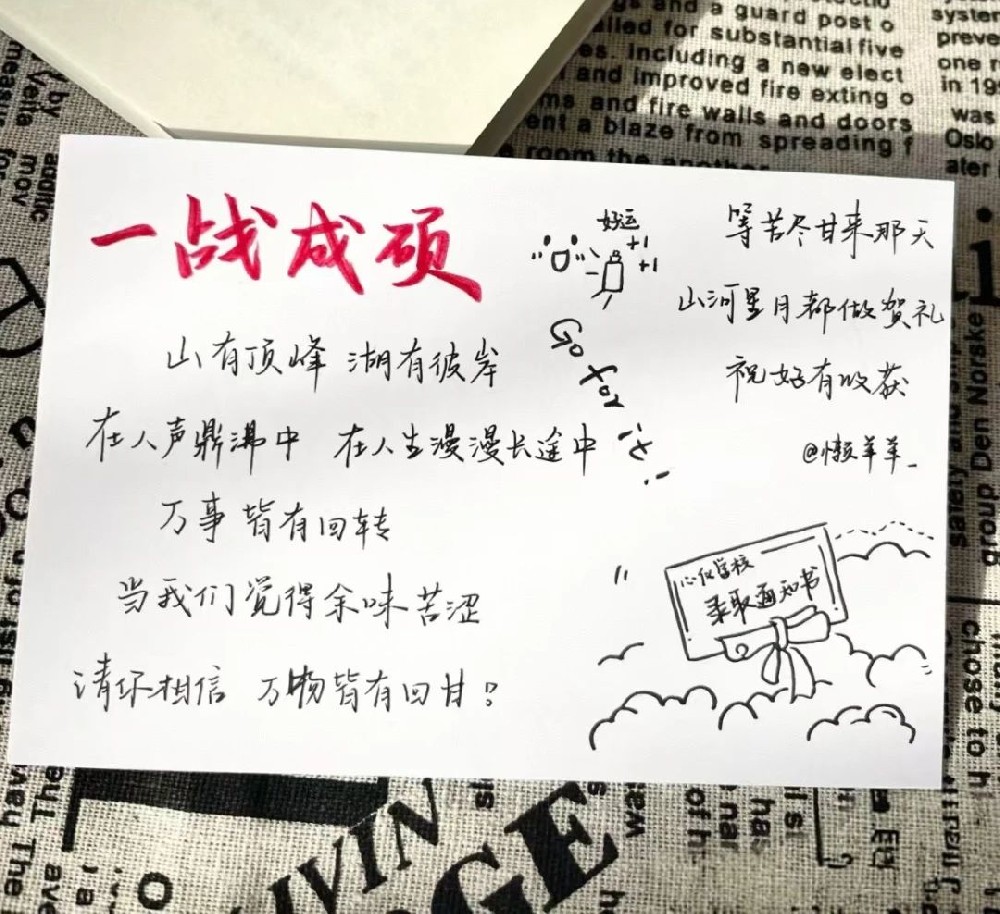 一战成硕
山有顶峰 湖有彼岸
在人声鼎沸中 在人生漫漫长途中
万事皆有回转
当我们觉得余味苦涩
请你相信 万物皆有回甘。
好运
+1
+1
Go for it!
等苦尽甘来那天
山河星月都做贺礼
祝好有收获
@懒羊羊_
心仪学校
录取通知书
s and a guard post o
alled for substantial five
es. Including a new elect
and improved fire exting o
ms and fire walls and doors
ent a blaze from spreading f
a room the another
system
preve
one r
in 199
was
Oslo
ater i
group Den Norske
safety and
chose to h